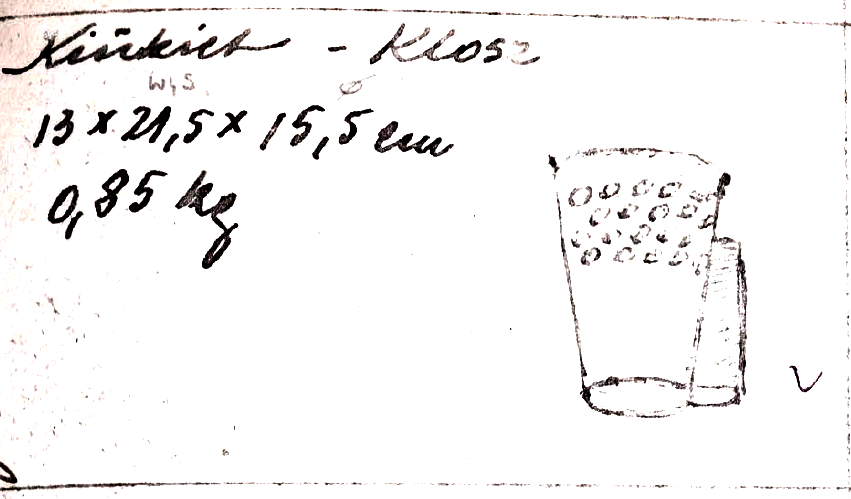 Kinkiet - Klosz
wys. ⌀
13 x 21,5 x 15,5 cm
0,85 kg